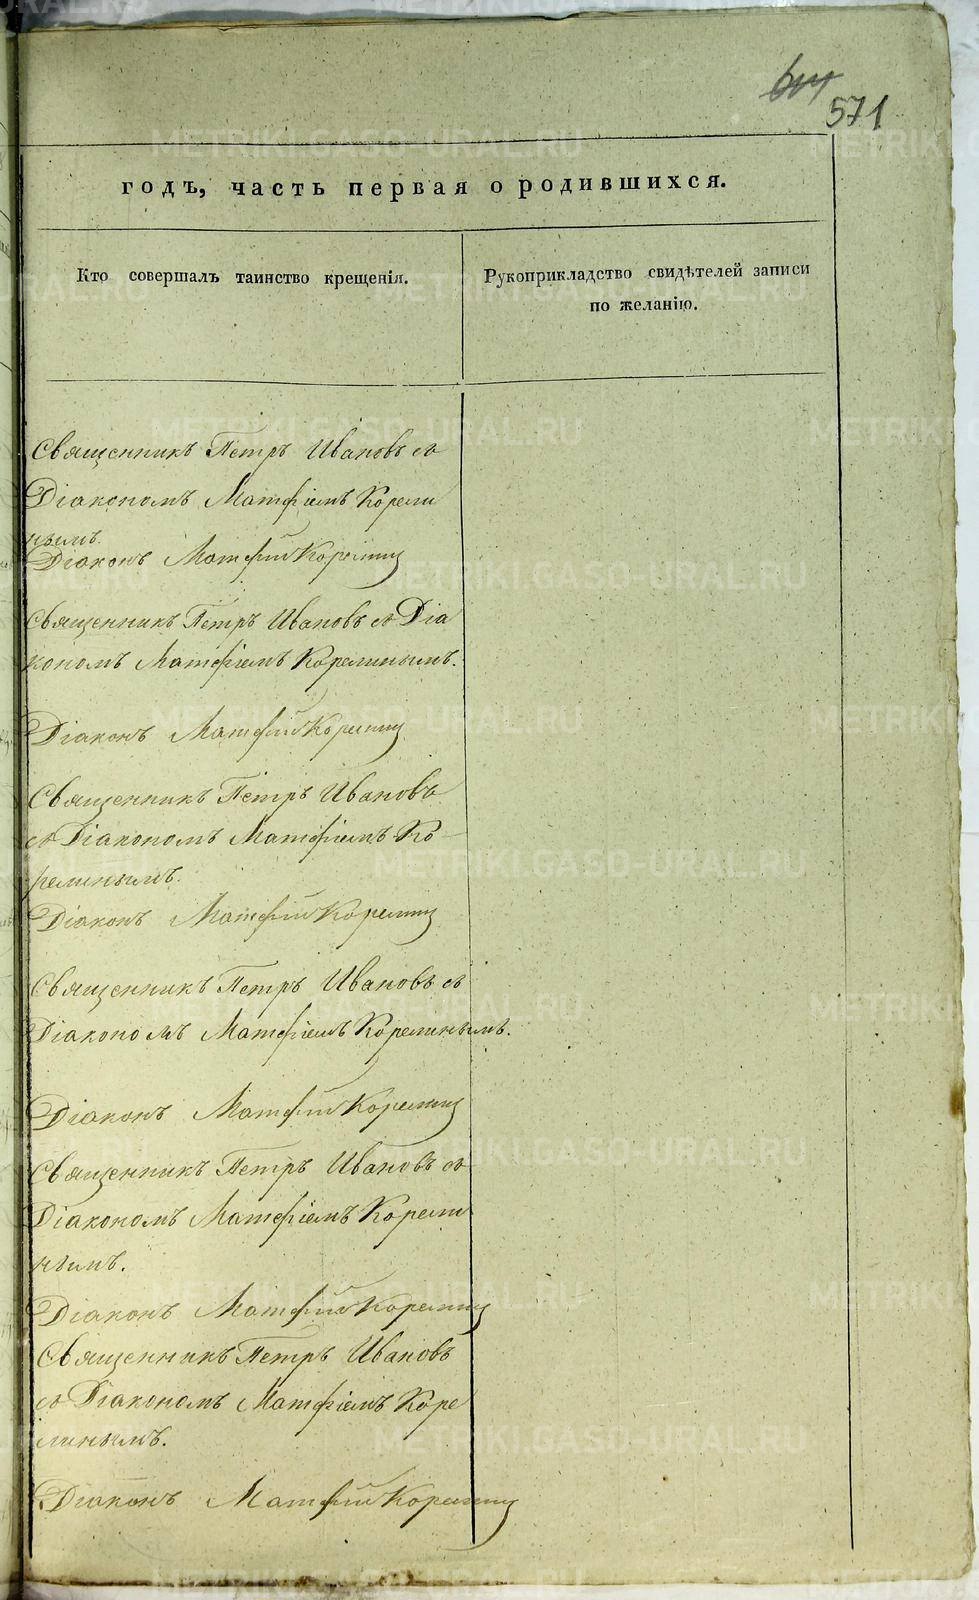 571
годъ, часть первая о родившихся.
Кто совершалъ таинство крещенія.
Рукоприкладство свидѣтелей записи
по желанію.
Священникъ Петръ Ивановъ съ
Діакономъ Матфіемъ Корели
нымъ.
Діаконъ Матфій Корелинъ
Священникъ Петръ Ивановъ съ Діа
кономъ Матфіемъ Корелинымъ.
Діаконъ Матфій Корелинъ
Священникъ Петръ Ивановъ
съ Діакономъ Матфіемъ Ко-
релинымъ.
Діаконъ Матфій Корелинъ
Священникъ Петръ Ивановъ съ
Діакономъ Матфіемъ Корелинымъ.
Діаконъ Матфій Корелинъ
Священникъ Петръ Ивановъ съ
Діакономъ Матфіемъ Корели
нымъ.
Діаконъ Матфій Корелинъ
Священникъ Петръ Ивановъ
съ Діакономъ Матфіемъ Коре
линымъ.
Діаконъ Матфій Корелинъ
METRIKI.GASO-URAL.RU